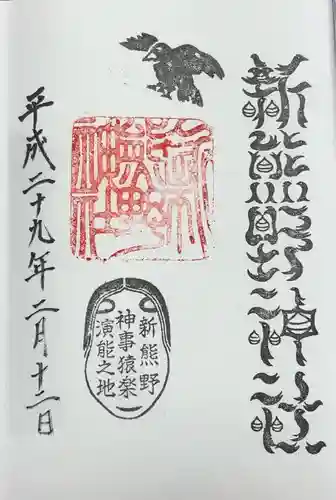 新熊野神社
新熊野
神事猿楽
演能之地
平成二十九年二月十二日